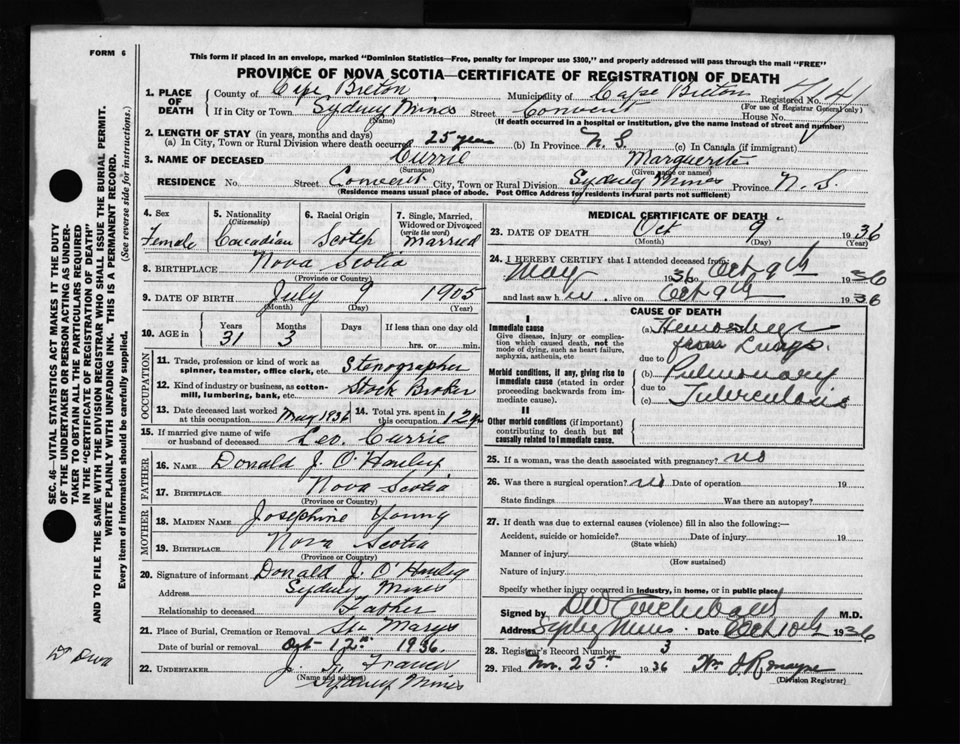 FORM 6
This form if placed in an envelope, marked "Dominion Statistics—Free, penalty for improper use $300," and properly addressed will pass through the mail "FREE"
PROVINCE OF NOVA SCOTIA—CERTIFICATE OF REGISTRATION OF DEATH
SEC. 46 VITAL STATISTICS ACT MAKES IT THE DUTY
OF THE UNDERTAKER OR PERSON ACTING AS UNDER-
TAKER TO OBTAIN ALL THE PARTICULARS REQUIRED
IN THE "CERTIFICATE OF REGISTRATION OF DEATH"
AND TO FILE THE SAME WITH THE DIVISION REGISTRAR WHO SHALL ISSUE THE BURIAL PERMIT.
WRITE PLAINLY WITH UNFADING INK. THIS IS A PERMANENT RECORD.
Every item of information should be carefully supplied. (See reverse side for instructions.)
1. PLACE OF DEATH County of Cape Breton Municipality of Cape Breton Registered No.
(For use of Registrar General only)
If in City or Town Sydney Mines Street Convent House No.
(Name) (If death occurred in a hospital or institution, give the name instead of street and number)
2. LENGTH OF STAY (in years, months and days)
(a) In City, Town or Rural Division where death occurred 25 years (b) In Province N. S. (c) In Canada (if immigrant)
3. NAME OF DECEASED Currie Marguerite
(Surname) (Given name or names)
RESIDENCE No. Street Convent City, Town or Rural Division Sydney Mines Province N. S.
(Residence means usual place of abode. Post Office Address for residents in rural parts not sufficient)
4. Sex Female
5. Nationality (Citizenship) Canadian
6. Racial Origin Scotch
7. Single, Married, Widowed or Divorced (write the word) Married
8. BIRTHPLACE Nova Scotia
(Province or Country)
9. DATE OF BIRTH July 9 1905
(Month) (Day) (Year)
10. AGE in Years 31 Months 3 Days If less than one day hrs. or min.
OCCUPATION
11. Trade, profession or kind of work as spinner, teamster, office clerk, etc. Stenographer
12. Kind of industry or business, as cotton-mill, lumbering, bank, etc. Stock Broker
13. Date deceased last worked at this occupation May 1936 14. Total yrs. spent in this occupation 12 yrs
15. If married give name of wife or husband of deceased Leo. Currie
FATHER
16. NAME Donald J. O'Hanley
17. BIRTHPLACE Nova Scotia
(Province or Country)
MOTHER
18. MAIDEN NAME Josephine Young
19. BIRTHPLACE Nova Scotia
(Province or Country)
20. Signature of informant Donald J. O'Hanley
Address Sydney Mines
Relationship to deceased Father
21. Place of Burial, Cremation or Removal St. Marys
Date of burial or removal Oct 12th 1936.
22. UNDERTAKER J. Francis
(Name and address) Sydney Mines
MEDICAL CERTIFICATE OF DEATH
23. DATE OF DEATH Oct 9 1936
(Month) (Day) (Year)
24. I HEREBY CERTIFY that I attended deceased from
May 1936 to Oct 9th 1936
and last saw her alive on Oct 9th 1936
CAUSE OF DEATH
I
Immediate cause
Give disease, injury or complication which caused death, not the mode of dying, such as heart failure, asphyxia, asthenia, etc
(a) Hemorrhage from Lungs.
due to
Morbid conditions, if any, giving rise to immediate cause (stated in order proceeding backwards from immediate cause).
(b) Pulmonary
due to
(c) Tuberculosis
II
Other morbid conditions (if important) contributing to death but not causally related to immediate cause.
25. If a woman, was the death associated with pregnancy? no
26. Was there a surgical operation? no Date of operation 19
State findings Was there an autopsy?
27. If death was due to external causes (violence) fill in also the following:—
Accident, suicide or homicide? Date of injury 19
(State which)
Manner of injury
(How sustained)
Nature of injury
Specify whether injury occurred in industry, in home, or in public place
Signed by D W Archibald M.D.
Address Sydney Mines Date Oct 10th 1936
28. Registrar's Record Number 3
29. Filed Nov. 25th 1936 Wm J. Romayne
(Division Registrar)